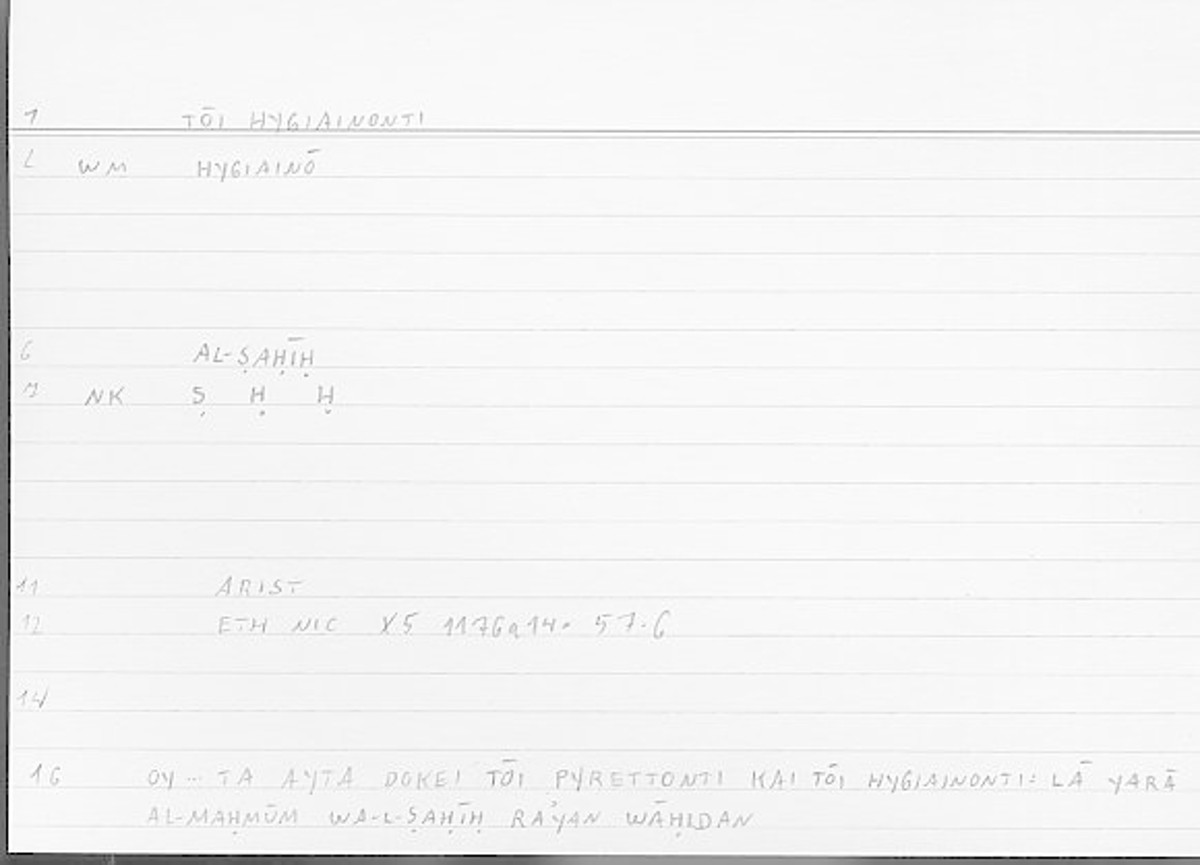 1 TŌI HYGIAINONTI
2 WM HYGIAINŌ
6 AL-ṢAḤĪḤ
7 NK Ṣ Ḥ Ḥ
11 ARIST
12 ETH NIC X5 1176a14= 57.6
14
16 OY ... TA AYTA DOKEI TŌI PYRETTONTI KAI TŌI HYGIAINONTI: LĀ YARĀ
AL-MAḤMŪM WA-L-ṢAḤĪḤ RA'YAN WĀḤIDAN